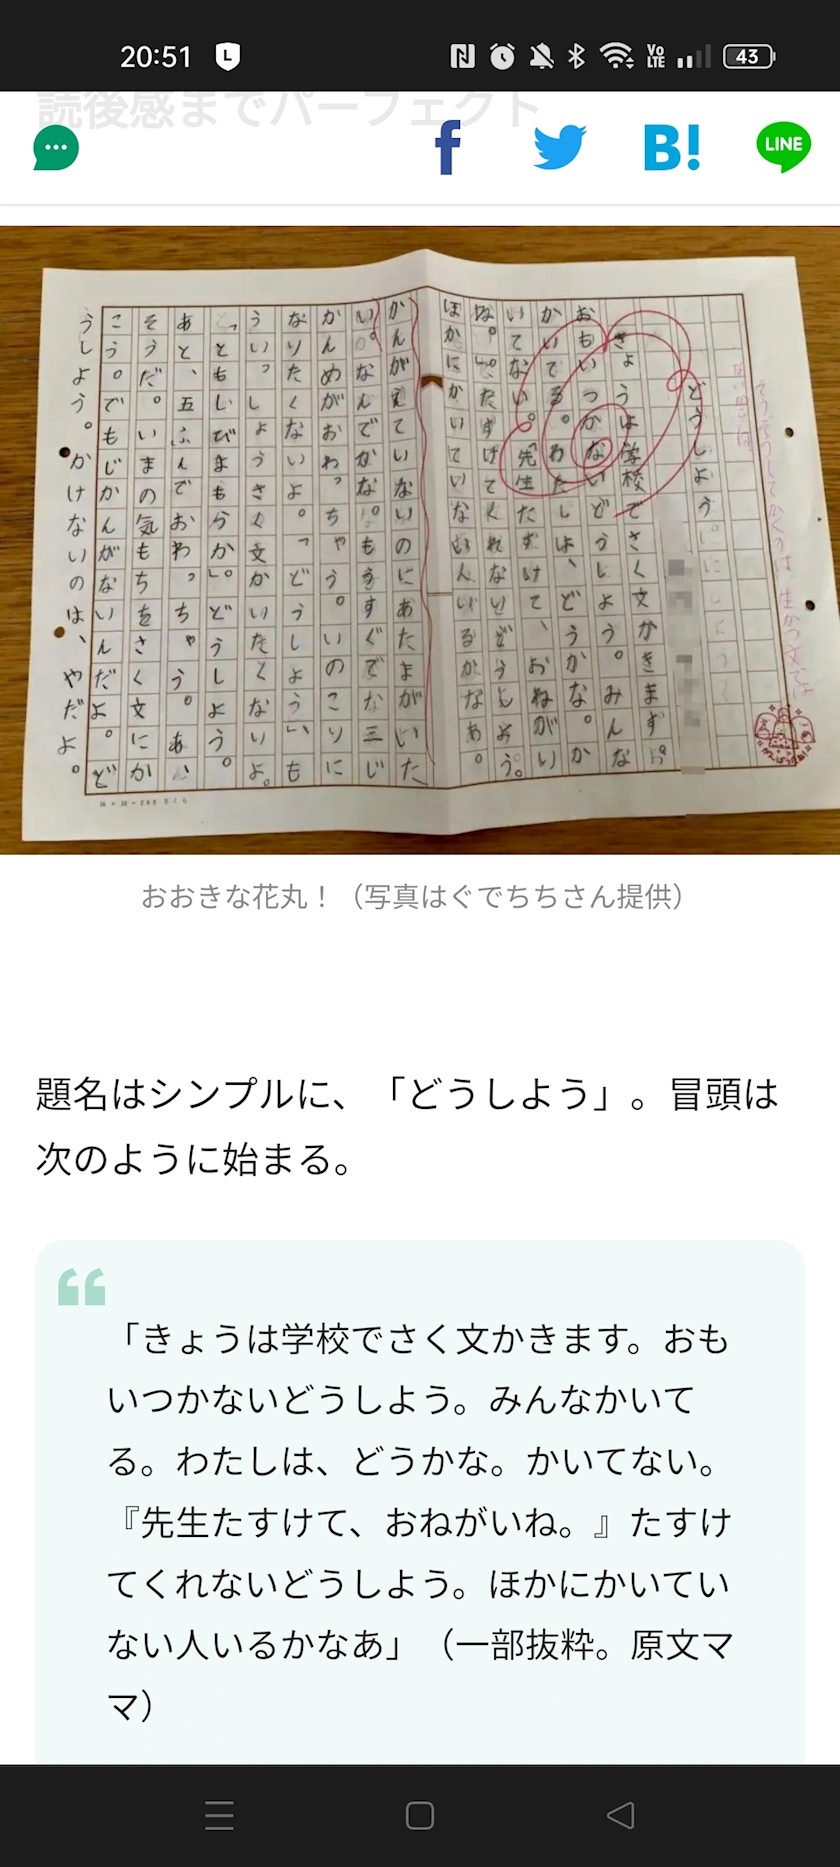 20:51
43
読後感までパーフェクト
f
B!
LINE
どうしよう
きょうは学校でさく文かきます。
おもいつかないどうしよう。みんな
かいてる。わたしは、どうかな。か
いてない。「先生たすけて、おねがい
ね。」たすけてくれないどうしよう。
ほかにかいていない人いるかなあ。
かんがえていないのにあたまがいた
い。なんでかな。もうすぐで三じ
かんめがおわっちゃう。いのこりに
なりたくないよ。「どうしよう」、も
ういっしょうさく文かいたくないよ。
「ともしびよもらか」。どうしよう。
あと、五ふんでおわっちゃう。あ、
そうだ。いまの気もちをさく文にか
こう。でもじかんがないんだよ。ど
うしよう。かけないのは、やだよ。
おおきな花丸！（写真はぐでちちさん提供）
題名はシンプルに、「どうしよう」。冒頭は
次のように始まる。
「きょうは学校でさく文かきます。おも
いつかないどうしよう。みんなかいて
る。わたしは、どうかな。かいてない。
『先生たすけて、おねがいね。』たすけ
てくれないどうしよう。ほかにかいてい
ない人いるかなあ」（一部抜粋。原文マ
マ）